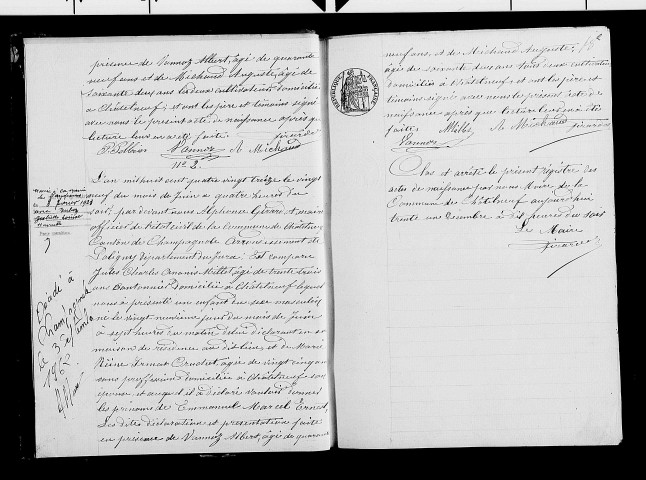 présence de Vannoz Albert, âgé de quarante
neuf ans et de Michaud Auguste, âgé de
soixante deux ans tous deux cultivateurs domiciliés
à Châtelneuf; et ont les père et témoins signé
avec nous le présent acte de naissance après que
lecture leur en a été faite. Girardet
Vannoz A Michaud
N° 2.
L'an mil huit cent quatre vingt treize le vingt
neuf du mois de Juin à quatre heures du
soir, par devant nous Alphonse Girardet, maire
officier de l'état civil de la Commune de Châtelneuf
Canton de Champagnole Arrondissement de
Poligny département du Jura; Est comparu
Jules Charles Ananie Millet âgé de trente trois
ans Cantonnier domicilié à Châtelneuf lequel
nous a présenté un enfant du sexe masculin
né le vingt neuvième jour du mois de Juin
à sept heures du matin de lui déclarant en sa
maison de résidence au dit lieu, et de Marie
âgée de vingt cinq ans
sans profession domiciliée à Châtelneuf son
épouse et auquel il a déclaré vouloir donner
les prénoms de Emmanuel Marcel Ernest,
Les dites déclaration et présentation faite
en présence de Vannoz Albert, âgé de quarante
le février 1921
Décédé à
Champagnole
Le 3
1962
neuf ans, et de Michaud Auguste,
âgé de soixante deux ans tous deux cultivateurs
domiciliés à Châtelneuf et ont les père et
témoins signé avec nous le présent acte de
naissance après que lecture leur en a été
faite. Millet A Michaud
Vannoz Girardet
Clos et arrêté le présent registre des
actes de naissance par nous Maire de la
Commune de Châtelneuf aujourd'hui
trente un Décembre à dix heures du soir
Le Maire
Girardet